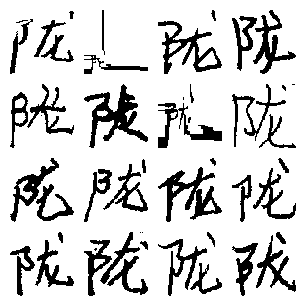 陇陇陇陇
陇陇陇陇
陇陇陇陇
陇陇陇陇